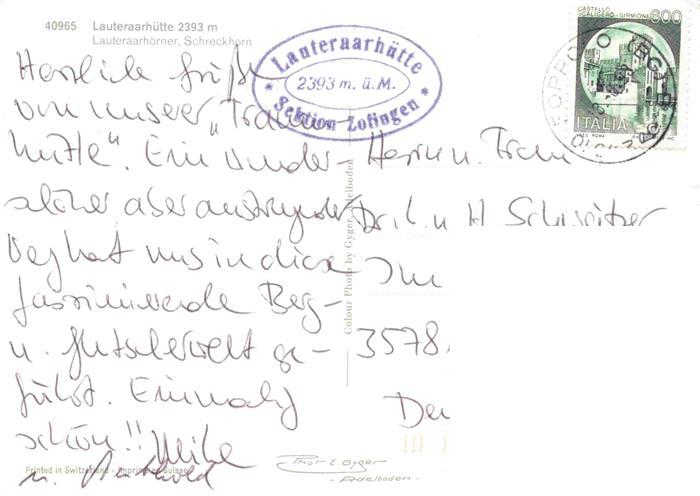 40965 Lauteraarhütte 2393 m
Lauteraarhörner, Schreckhorn
Lauteraarhütte
2393 m. ü. M.
Sektion Zofingen
CASTELLO
SCALIGERO-SIRMIONE 600
ITALIA
Herzliche Grüße
von unserer „Traum-
hütte". Ein wunder-
schöner aber anstrengender
Weg hat uns in diese
faszinierende Berg-
u. Gletscherwelt ge-
führt. Einmalig
schön!! Meike
u.
Herrn u. Frau
Dr. L. u H Schweitzer
Im
3578
Colour Photo by Gyger, Adelboden
Printed in Switzerland - Imprimé en Suisse
Thor E. Gyger
- Adelboden -